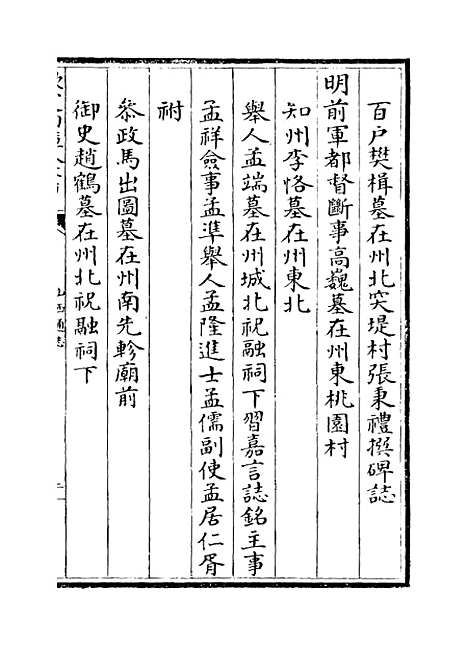 百户樊楫墓在州北突堤村張秉禮撰碑誌
明前軍都督斷事高巍墓在州東桃園村
知州李恪墓在州東北
舉人孟端墓在州城北祝融祠下習嘉言誌銘主事
孟祥僉事孟準舉人孟隆進士孟儒副使孟居仁胥
祔
叅政馬出圖墓在州南先軫廟前
御史趙鶴墓在州北祝融祠下
山西通志